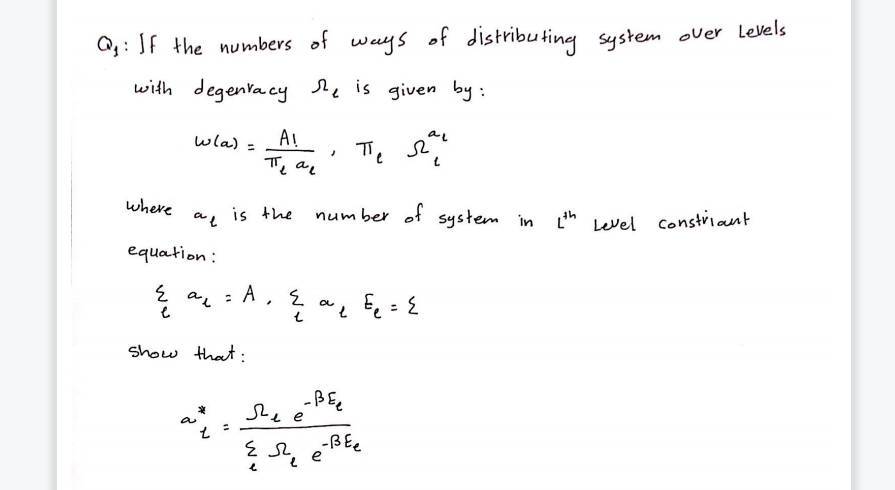 Q1: If the numbers of ways of distributing system over Levels
with degenracy Ωℓ is given by:
w(a) = A! / πℓ aℓ , πℓ Ωℓ^aℓ
where aℓ is the number of system in Lth Level constriant
equation:
Σℓ aℓ = A , Σℓ aℓ Eℓ = Σ
show that:
a*ℓ = Ωℓ e^-βEℓ / Σℓ Ωℓ e^-βEℓ